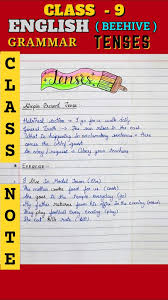 CLASS - 9
ENGLISH (BEEHIVE)
GRAMMAR TENSES
CLASS NOTE
Tenses
Simple Present Tense
Habitual action = I go for walk daily
General Truth → The sun rises in the east
What is happening in commentary sentence → Here
comes the eddy
An story / request → Obey your teachers
Exercise -
I live in Model Town (live)
The mother cooks food for us (cook)
She goes to the temple everyday (go)
My father returns from his office in the evening
They play football every evening (play)